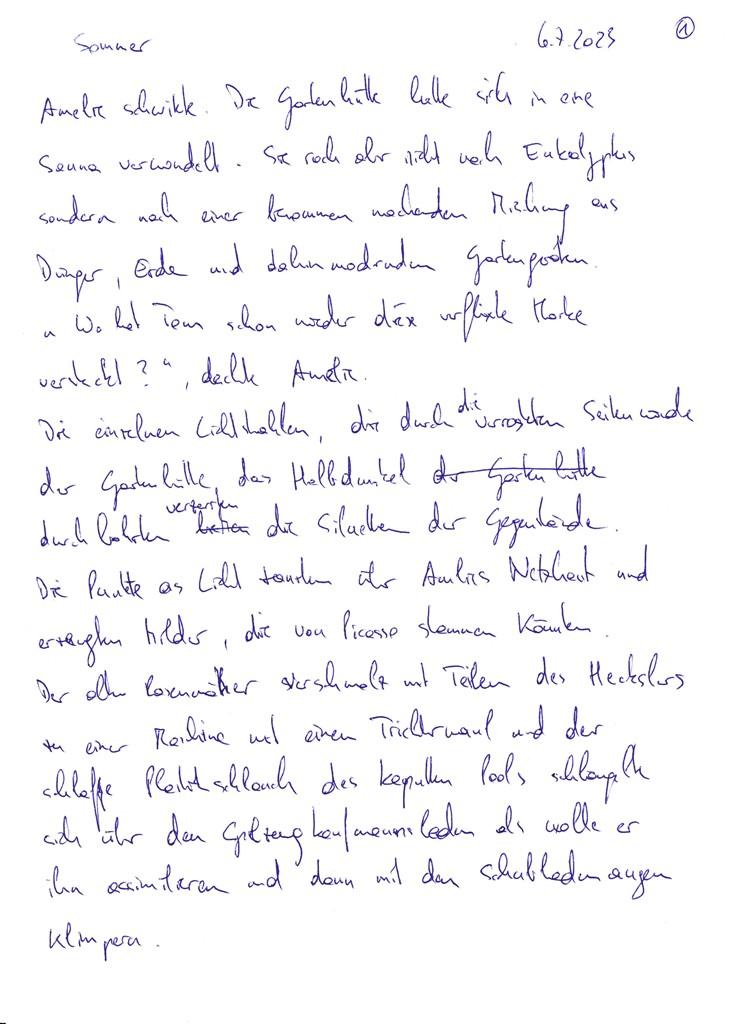 Sommer 6.7.2023 1
Amelie schwitzte. Die Gartenhütte hatte sich in eine
Sauna verwandelt. Sie roch aber nicht nach Eukalyptus
sondern nach einer benommen machenden Mischung aus
Dünger, Erde und dahinmodernden Gartengeräten.
„Wo hat Tom schon wieder diese verflixte Harke
versteckt?“, dachte Amelie.
Die einzelnen Lichtstrahlen, die durch die verrosteten Seitenwände
der Gartenhütte, das Halbdunkel der Gartenhütte
durchbohrten verzerrten die Silhuetten der Gegenstände.
Die Punkte aus Licht tanzten über Amelies Netzhaut und
erzeugten Bilder, die von Picasso stammen könnten.
Der alte Rasenmäher verschmolz mit Teilen des Häckslers
zu einer Maschine mit einem Trichtermaul und der
schlaffe Plastikschlauch des kaputten Pools schlängelte
sich über den Spielzeugkaufmannsladen als wolle er
ihn assimilieren und dann mit den Schubladenaugen
klimpern.